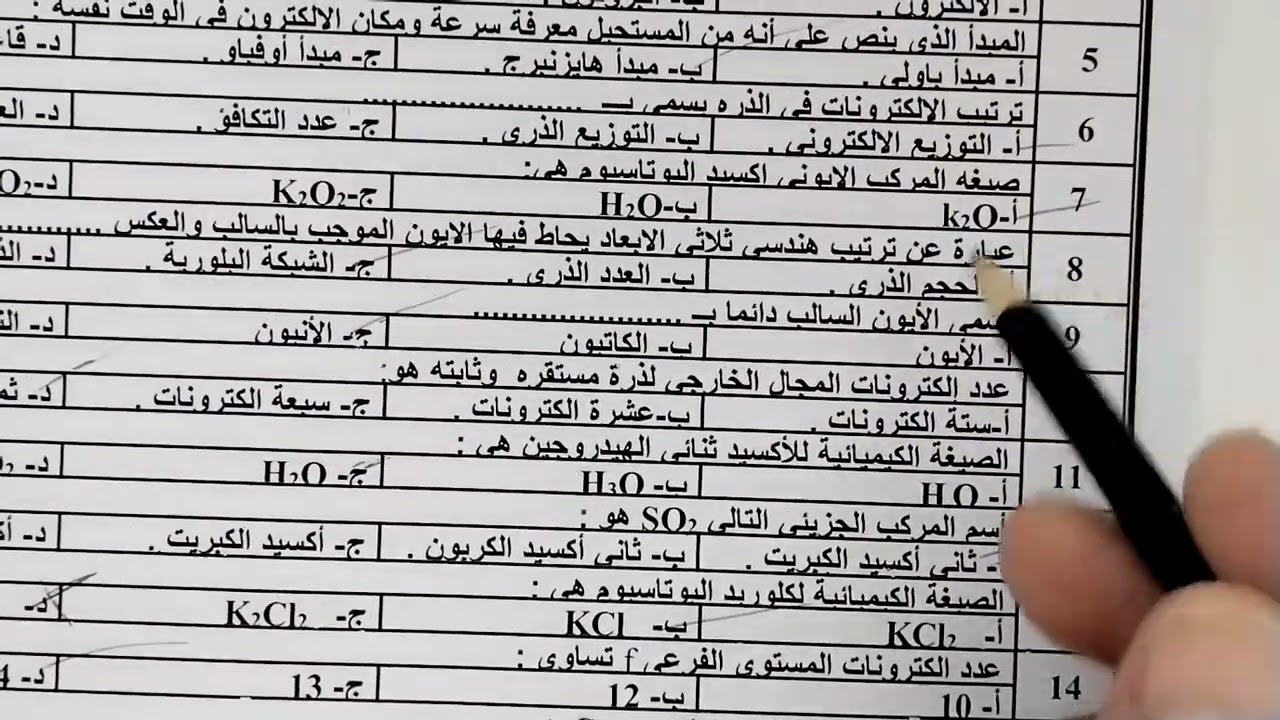 أ- الالكترون .
المبدأ الذى ينص على أنه من المستحيل معرفة سرعة ومكان الالكترون فى الوقت نفسه :
5
أ- مبدأ باولى . ب- مبدأ هايزنبرج . ج- مبدأ أوفباو . د-
ترتيب الالكترونات فى الذره يسمى بـ ......................
6
أ- التوزيع الالكترونى . ب- التوزيع الذرى . ج- عدد التكافؤ . د-
صيغه المركب الايونى اكسيد البوتاسيوم هى:
7
أ- k₂O ب- H₂O ج- K₂O₂ د-
عبارة عن ترتيب هندسى ثلاثى الابعاد يحاط فيها الايون الموجب بالسالب والعكس ...........
8
الحجم الذرى . ب- العدد الذرى . ج- الشبكة البلورية . د-
يسمى الأيون السالب دائما بـ .....................
9
أ- الأيون ب- الكاتيون ج- الأنيون د-
عدد إلكترونات المجال الخارجى لذرة مستقره وثابته هو:
أ-ستة الكترونات . ب-عشرة الكترونات . ج- سبعة الكترونات . د-
الصيغة الكيميائية للأكسيد ثنائى الهيدروجين هى :
11
أ- H O ب- H₃O ج- H₂O د-
أسم المركب الجزيئى التالى SO₂ هو :
- ثانى أكسيد الكبريت . ب- ثانى أكسيد الكربون . ج- أكسيد الكبريت . د-
الصيغة الكيميائية لكلوريد البوتاسيوم هى :
أ- KCl₂ ب- KCl ج- K₂Cl₂ د-
عدد الكترونات المستوى الفرعى f تساوى :
14
أ- 10 ب- 12 ج- 13 د-